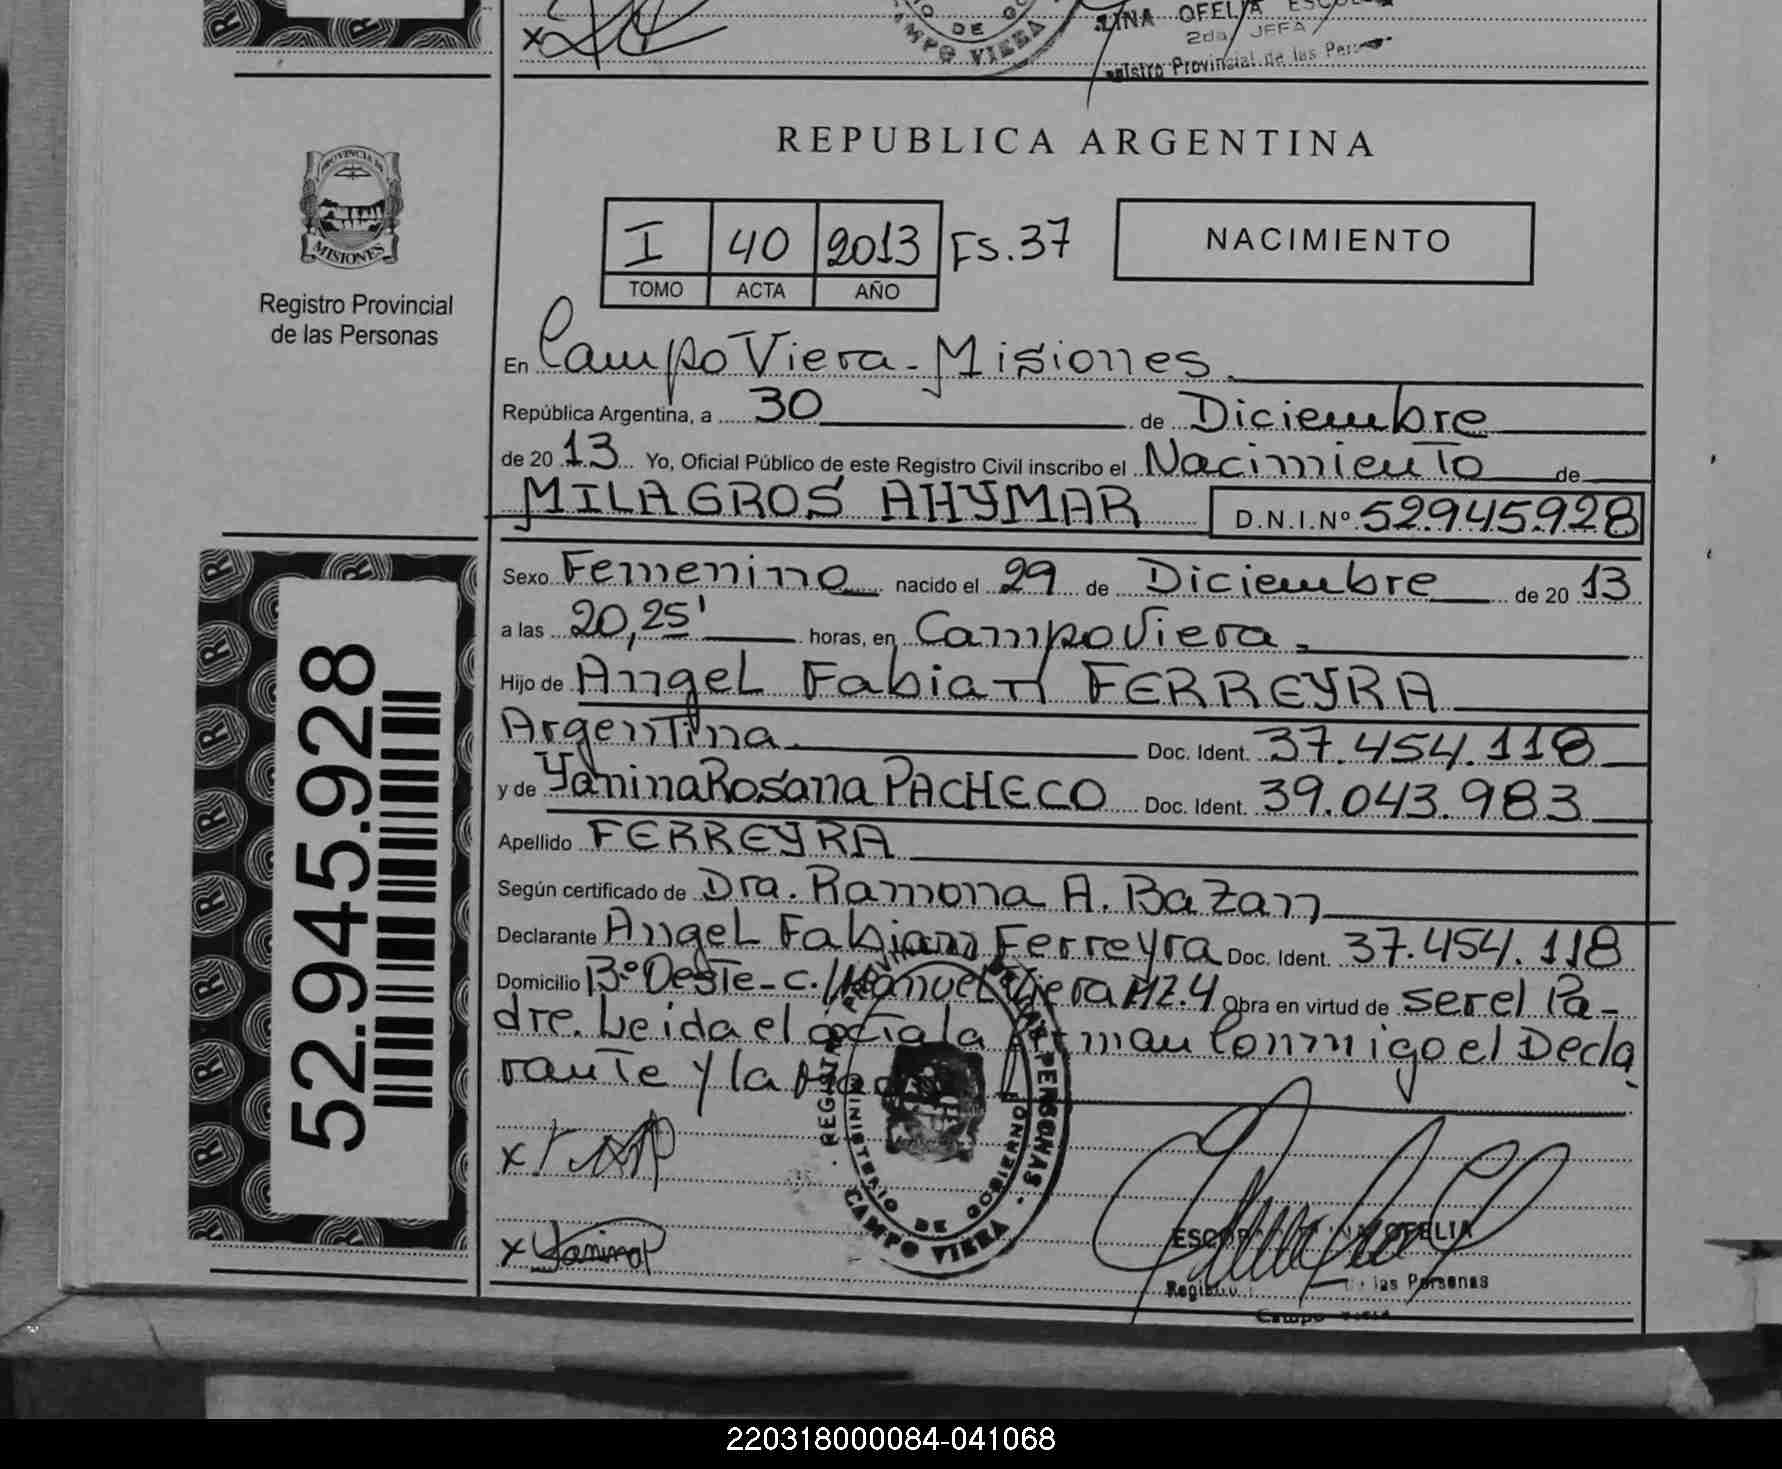 LINA OFELIA
2da JEFA
Registro Provincial de las Pers
DE
CAMPO VIERA
REPUBLICA ARGENTINA
PROVINCIA DE
MISIONES
Registro Provincial
de las Personas
I 40 2013 Fs.37
TOMO ACTA AÑO
NACIMIENTO
En Campo Viera - Misiones
República Argentina, a 30 de Diciembre
de 20 13 Yo, Oficial Público de este Registro Civil inscribo el Nacimiento de
MILAGROS AHYMAR D.N.I.Nº 52.945.928
Sexo Femenino nacido el 29 de Diciembre de 20 13
a las 20,25' horas, en Campo Viera
Hijo de Angel Fabian FERREYRA
Argentina Doc. Ident. 37.454.118
y de Yanina Rosana PACHECO Doc. Ident. 39.043.983
Apellido FERREYRA
Según certificado de Dra. Ramona A. Bazan
Declarante Angel Fabian Ferreyra Doc. Ident. 37.454.118
Domicilio Bº Oeste - C./Manuel Viera MZ.4 Obra en virtud de ser el Pa-
dre. Leida el acta la firman Conmigo el Decla
rante y la Madre
52.945.928
PERSONAS
MINISTERIO DE GOBIERNO
CAMPO VIERA
x Yanina P
OFELIA
las Personas
Campo
220318000084-041068